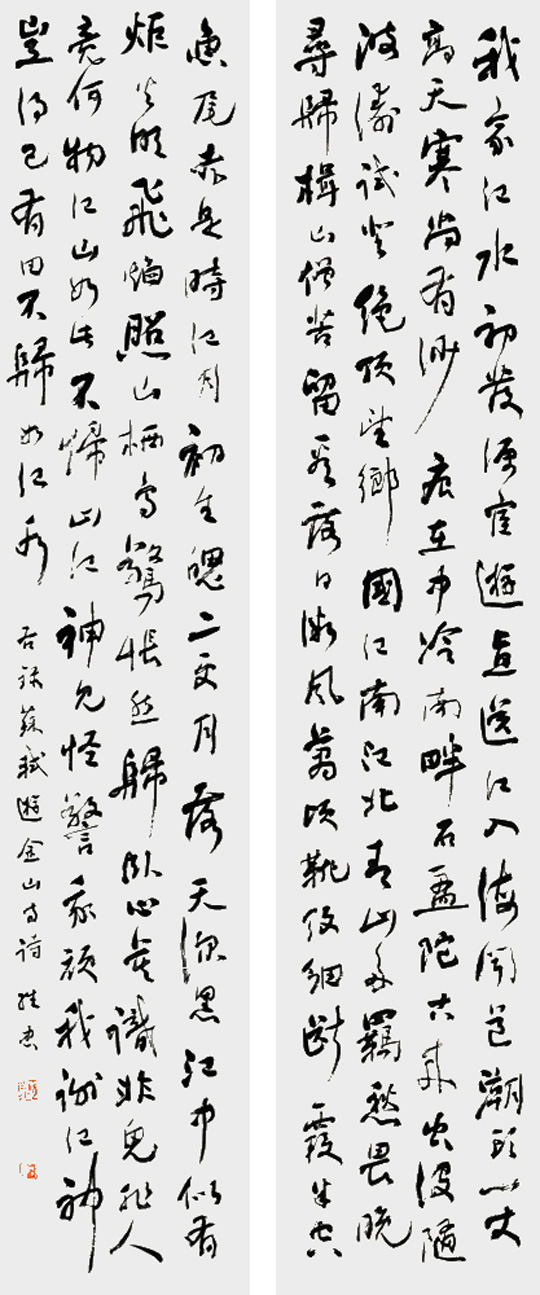 我家江水初發源宦遊直送江入海聞道潮頭一丈
高天寒尚有沙痕在中冷南畔石盤陀古來出沒隨
波濤試登絕頂望鄉國江南江北青山多羈愁畏晚
尋歸楫山僧苦留看落日微風萬頃靴紋細斷霞半空
魚尾赤是時江月初生魄二更月落天深黑江中似有
炬火明飛焰照山栖鳥驚悵然歸臥心莫識非鬼非人
竟何物江山如此不歸山江神見怪警我頑我謝江神
豈得已有田不歸如江水
右錄蘇軾遊金山寺詩